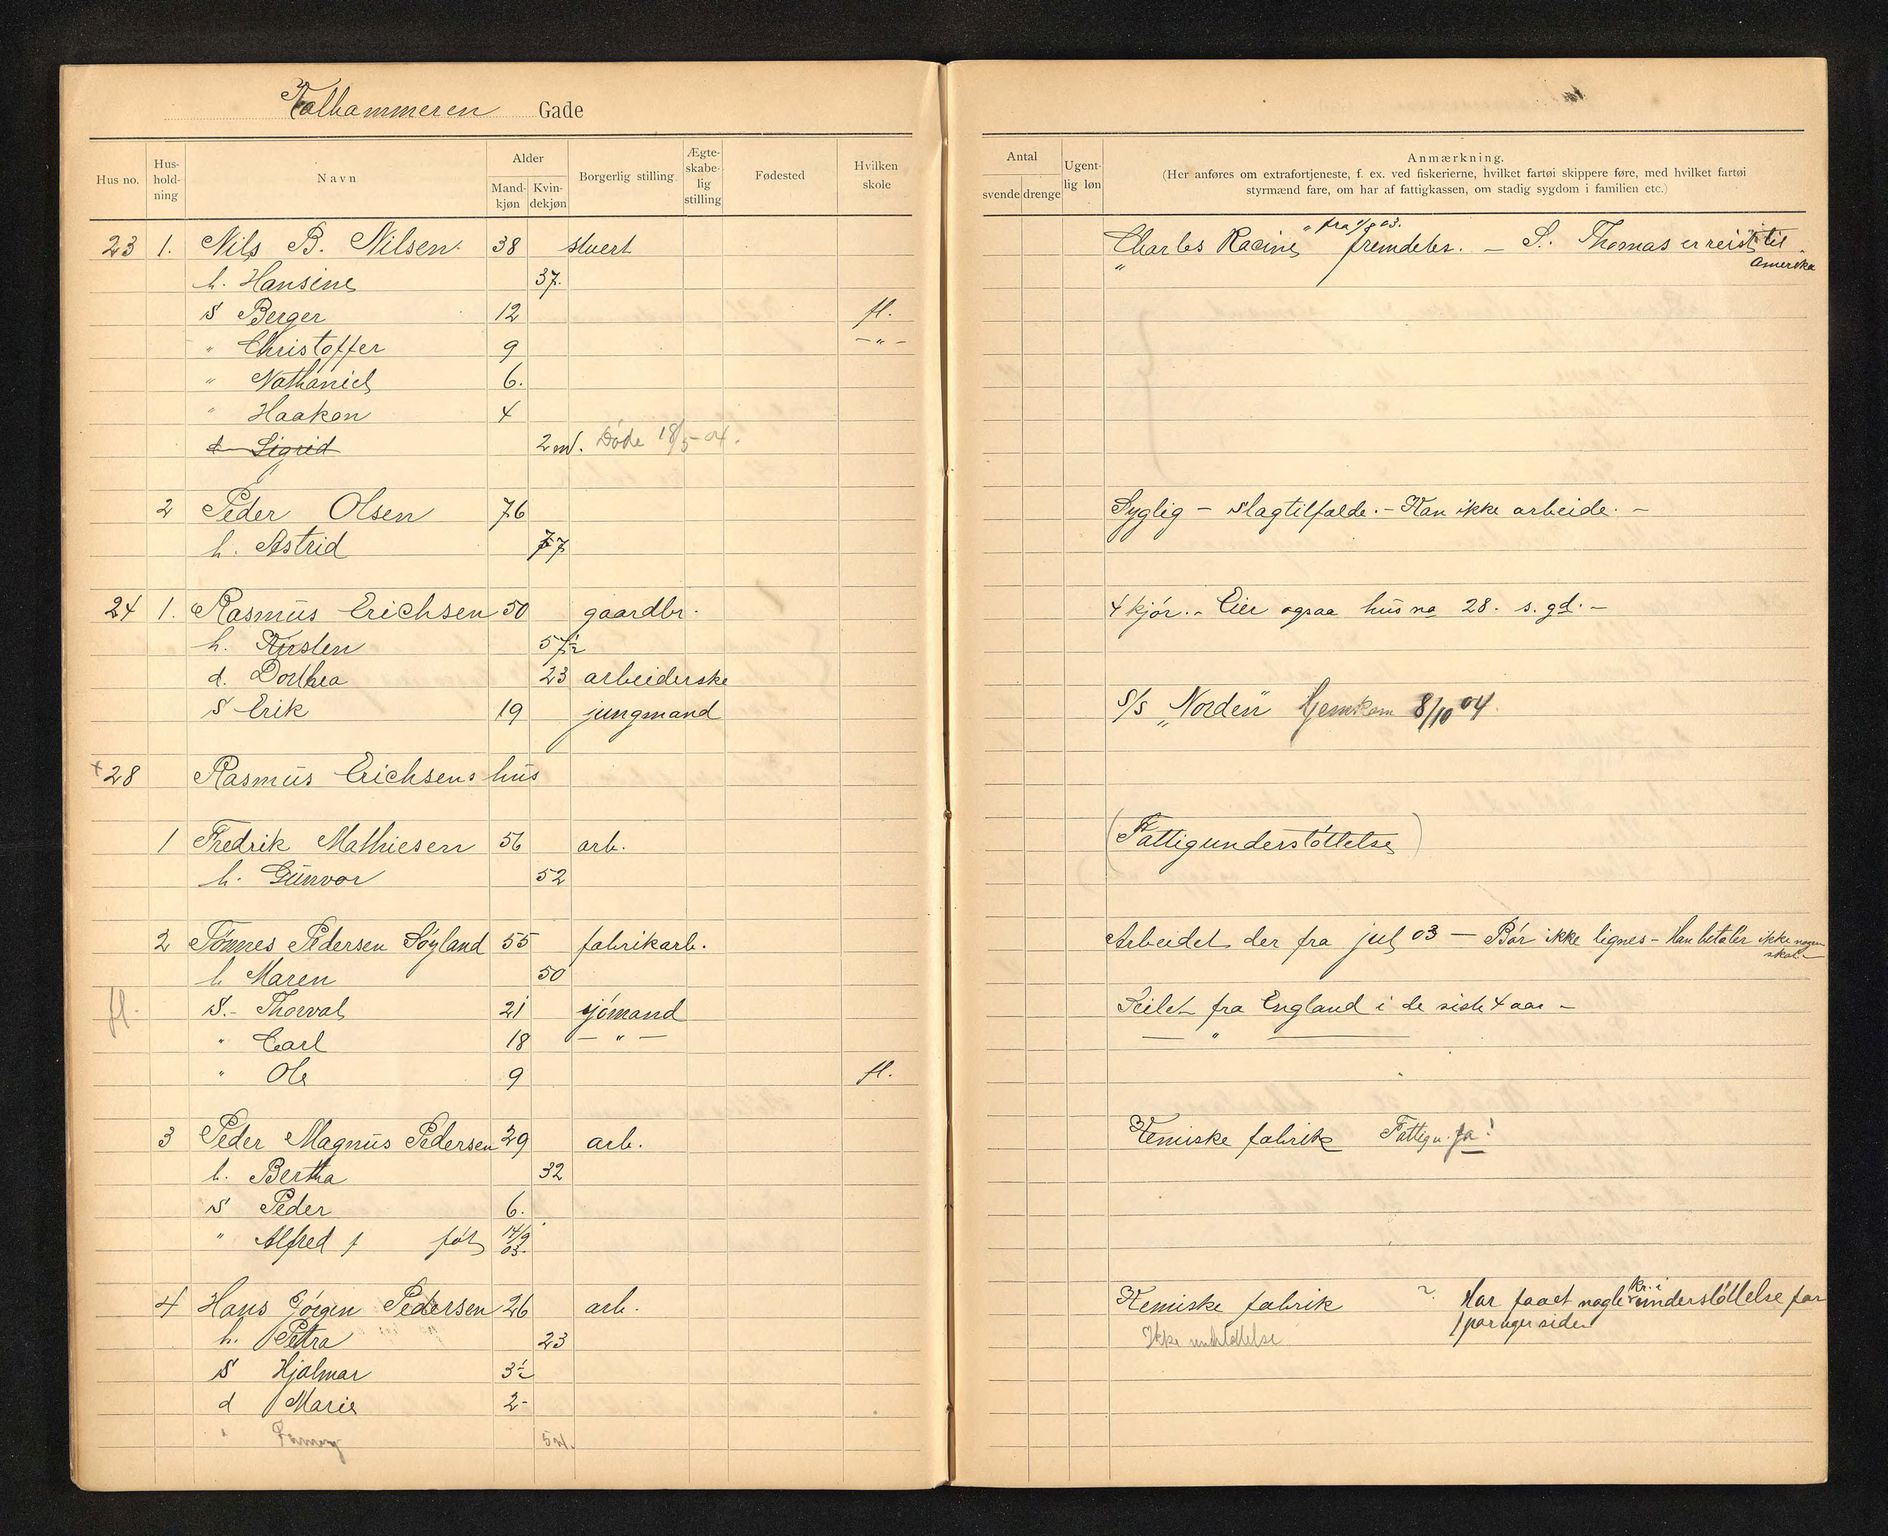 Kalhammeren Gade
Hus no. Hus-hold-ning Navn Alder Mand-kjøn Kvin-dekjøn Borgerlig stilling. Ægte-skabe-lig stilling Fødested Hvilken skole
Antal svende drenge Ugent-lig løn Anmærkning.
(Her anføres om extrafortjeneste, f. ex. ved fiskerierne, hvilket fartøi skippere føre, med hvilket fartøi
styrmænd fare, om har af fattigkassen, om stadig sygdom i familien etc.)
23 1. Nils B. Nilsen. 38 stuert "Charles Racine" fra 1/8 03. fremdeles. — S. Thomas er reist til Amerika
h. Hansine 37.
S Berger 12 fl.
" Christoffer 9 — " —
" Nathaniel 6.
" Haakon 4
d Sigrid 2 m. Døde 18/5-04.
2 Peder Olsen 76 Syglig — slagtilfælde. — Kan ikke arbeide. —
h. Astrid 77
24 1. Rasmus Erichsen 50 gaardbr. 4 kjør. - Eier ogsaa hus no 28. s. gd. —
h. Kirsten 57½
d. Dorthea 23 arbeiderske
S Erik 19 jungmand S/s "Norden" Hjemkom 8/10 04
+28 Rasmus Erichsens hus
1 Fredrik Mathiesen 56 arb. (Fattigunderstøttelse)
h. Gunvor 52
2 Tønnes Pedersen Søyland 55 fabrikarb. Arbeidet der fra jul 03 — Bør ikke lignes — Han betaler ikke nogen skat —
h Maren 50
fl. S. - Thorval 21 sjømand Seilet fra England i de siste 4 aar —
" Carl 18 — " — — " —
" Ole 9 fl.
3 Peder Magnus Pedersen 29 arb. Kemiske fabrik Fattigu. ja!
h. Bertha 32
S Peder 6.
" Alfred f føt 14/9 03.
4 Hans Jørgen Pedersen 26 arb. Kemiske fabrik ? Har faaet nogle kr. i understøttelse for
h. Petra 23 Ikke understøttelse / par uger siden
S Hjalmar 3½
d Marie 2-
" 5 m.